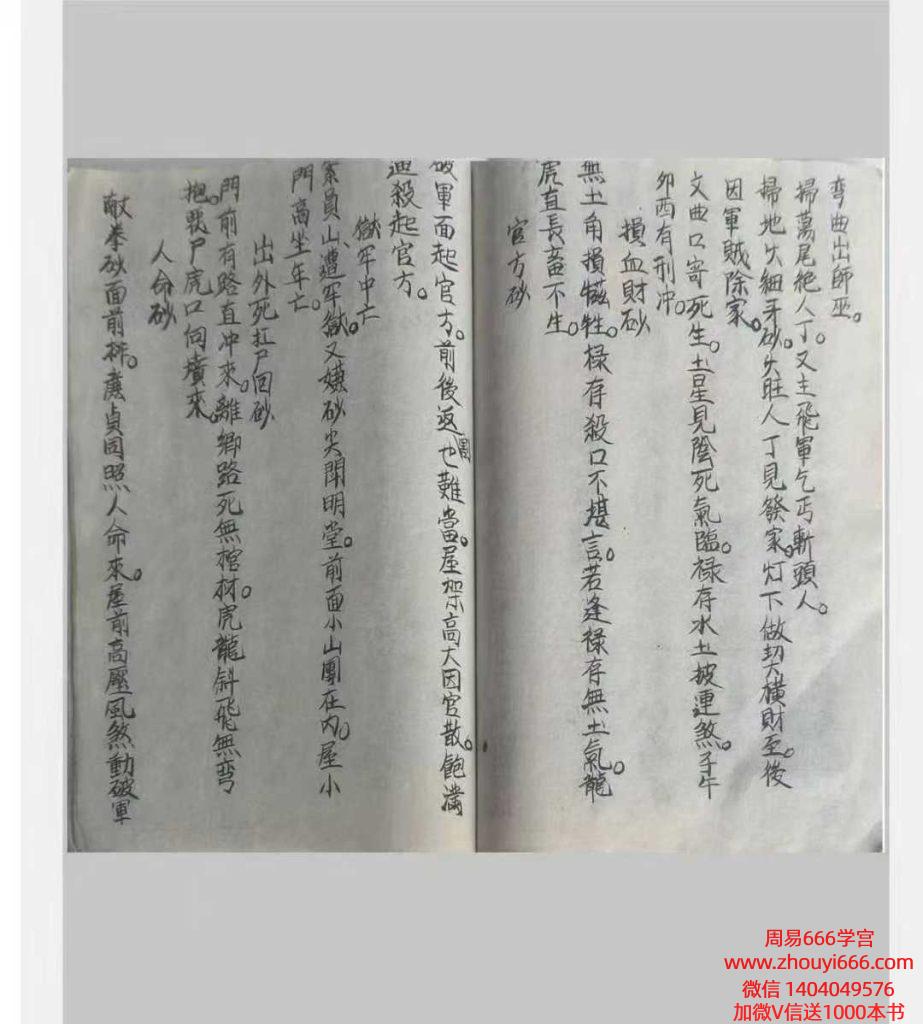 弯曲出師巫。
掃蕩尾絶人丁。又主飛軍乞丐斬頭人。
掃地火細牙砂。火旺人丁見發家。灯下做契大横財至。後
因軍賊除家。
文曲口寄死生。土星見陰死氣臨。禄存水土披連煞。子午
卯酉有刑冲。
損血財砂
無土角損犧牲。禄存殺口不堪言。若逢禄存無土氣。龍
虎直長畜不生。
官方砂
破軍面起官方。前後返周也難當。屋架高大因官散。飽满
迎殺起官方。
獄牢中亡
山、遭牢獄。又嫌砂尖閗明堂。前面小山團在内。屋小
門高坐年亡。
出外死扛尸回砂
門前有路直冲來。離鄉路死無棺材。虎龍斜飛無弯
抱。戰尸虎口向墳來。
人命砂
献拳砂面前排。廉貞同照人命來。屋前高壓風煞動破軍
周易666学宫
www.zhouyi666.com
微信 1404049576
加微V信送1000本书